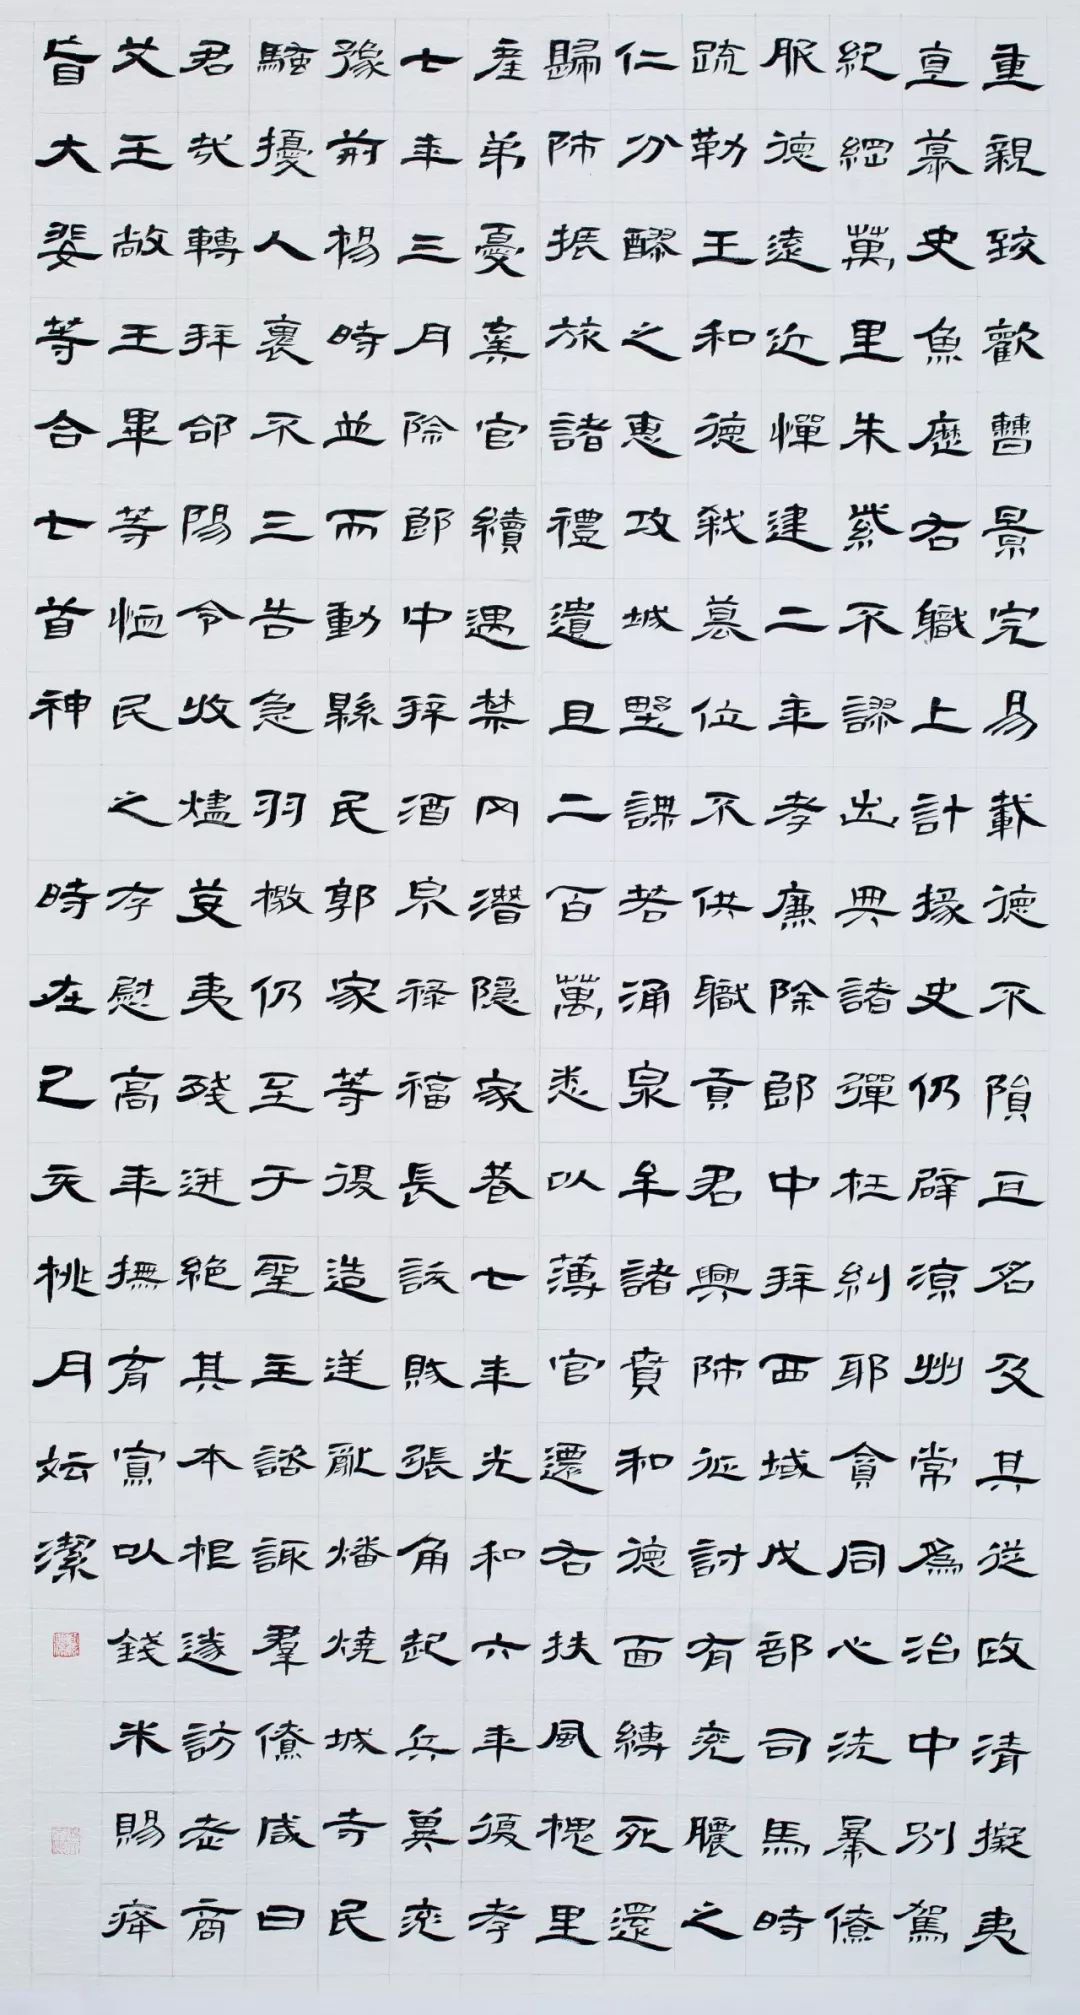 重親致歡曹景完易載德不隕亘名及其從政清擬夷
直慕史魚歷右職上計掾史仍辟涼州常為治中別駕
紀綱萬里朱紫不謬出典諸彈枉糾邪貪同心洗羃僚
服德遠近憚建二年孝廉除郎中拜西域戊部司馬時
疏勒王和德弒篡位不供職貢君興師征討有兗膿之
仁分醪之惠攻城墅謀若涌泉牟諸賁和德面縛死還
歸師振旅諸禮遺且二百萬悉以薄官還右扶風槐里
產弟憂棄官續遇禁冈潛隱家巷七年光和六年復孝
七年三月除郎中拜酒泉祿福長訞賊張角起兵冀兗
豫荊楊時並而動縣民郭家等復造逆亂燔燒城寺民
騷擾人裏不三告急羽檄仍至于聖主諮諏羣僚咸曰
君哉轉拜郃陽令收燼芟夷殘迸絕其本根遂訪老商
艾王敞王畢等恤民之存慰高年撫育寡以錢米賜瘴
旨大婓等合七首神 時在己亥桃月妘潔